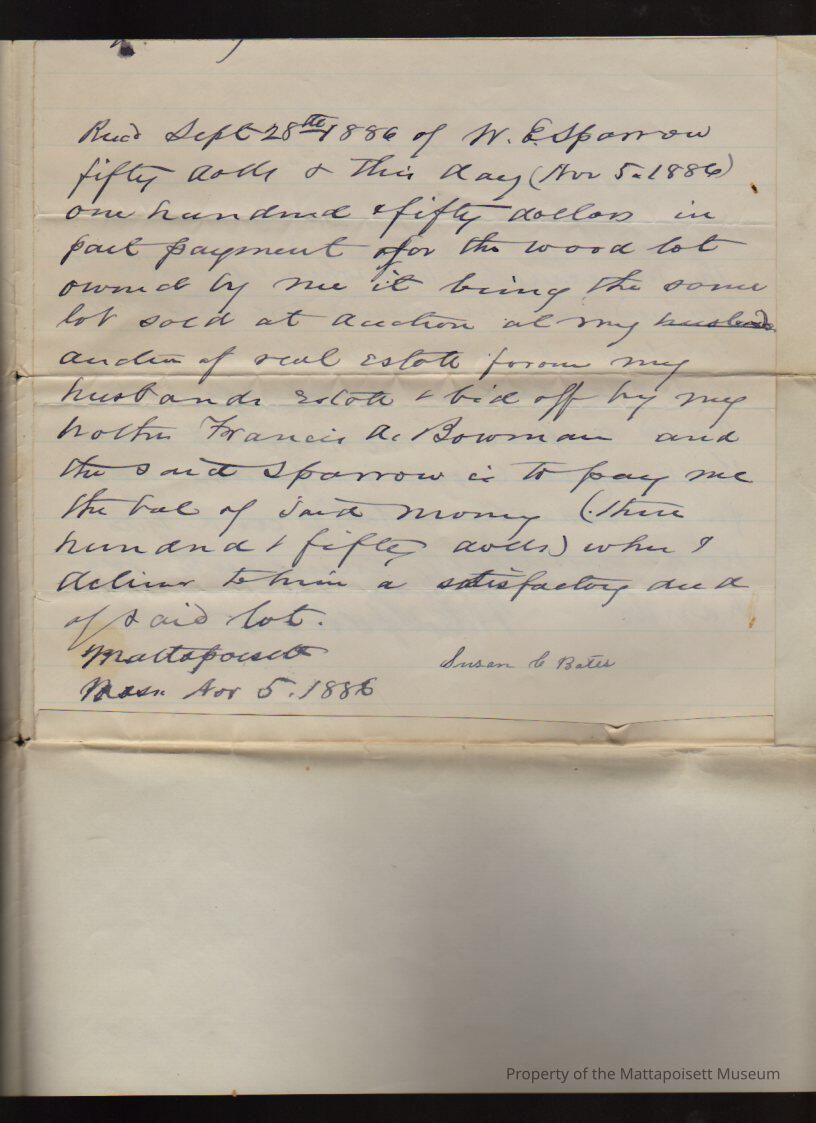 Recd Sept 28th 1886 of W. E. Sparrow
fifty dolls & this day (Nov 5. 1886)
one hundred & fifty dollars in
part payment for the wood lot
owned by me it being the same
lot sold at auction at my husbands
auction of real estate from my
husbands estate & bid off by my
brother Francis A. Bowman and
the said Sparrow is to pay me
the bal of said money (three
hundred & fifty dolls) when I
deliver to him a satisfactory deed
of said lot.
Mattapoisett
Susan C Bates
Mass. Nov 5. 1886
Property of the Mattapoisett Museum